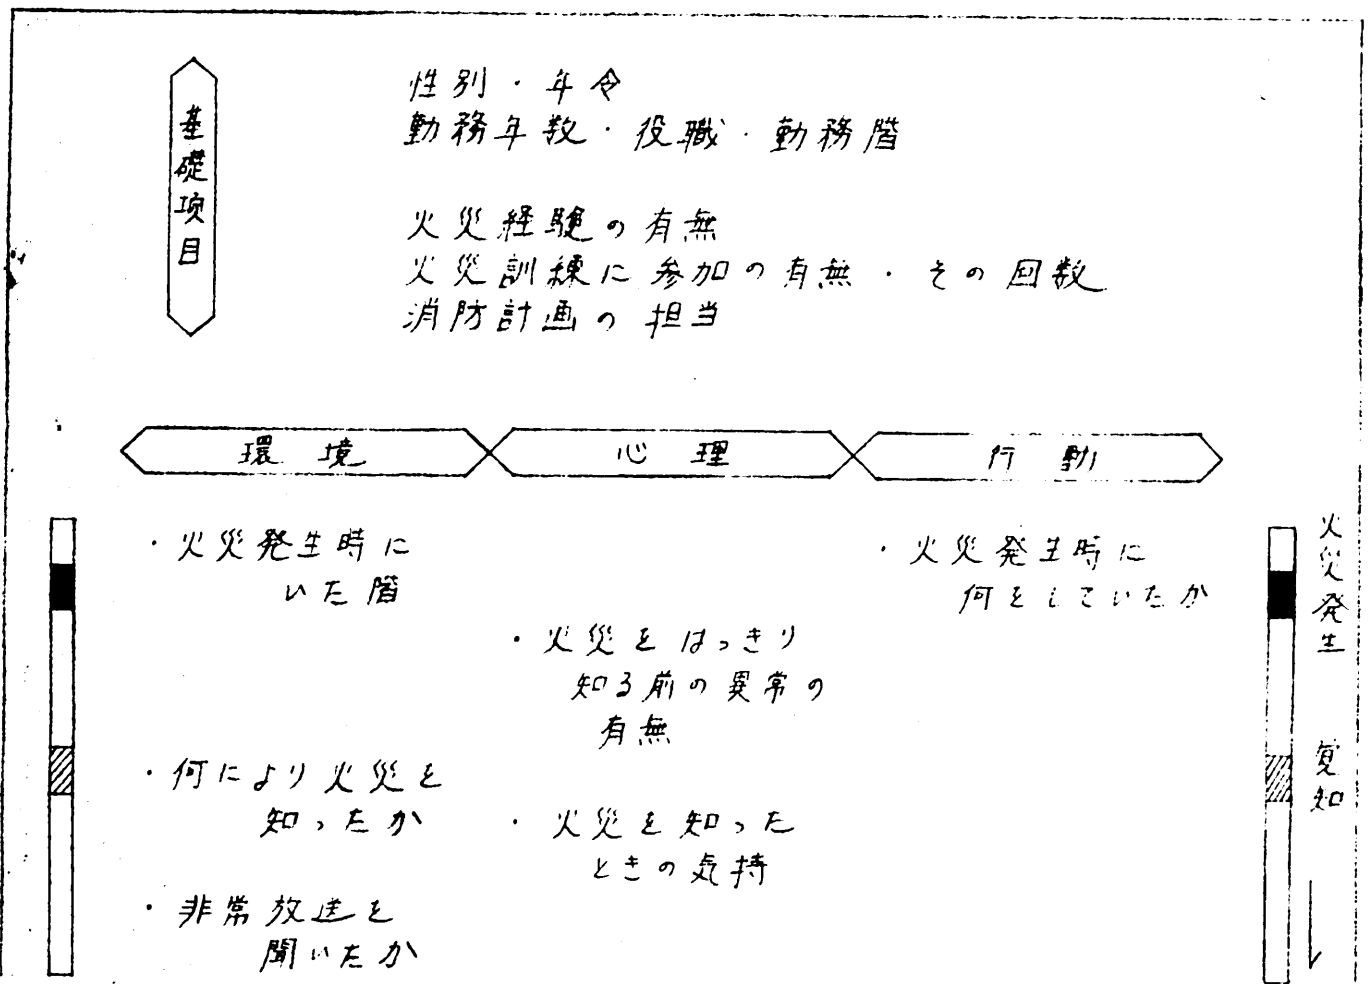 基礎項目
性別・年令
勤務年数・役職・勤務階
火災経験の有無
火災訓練に参加の有無・その回数
消防計画の担当
環境
心理
行動
・火災発生時に
いた階
・何により火災を
知ったか
・非常放送を
聞いたか
・火災をはっきり
知る前の異常の
有無
・火災を知った
ときの気持
・火災発生時に
何をしていたか
火災発生
覚知